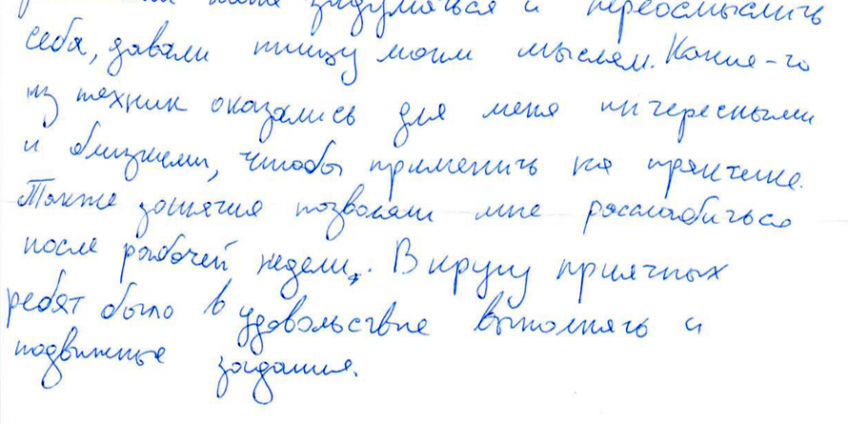 задуматься и переосмыслить
себя, давали пищу моим мыслям. Какие-то
из техник оказались для меня интересными
и близкими, чтобы применить на практике.
Также занятия позволяли мне расслабиться
после рабочей недели. В кругу приятных
ребят было в удовольствие выполнять и
подвижные задания.